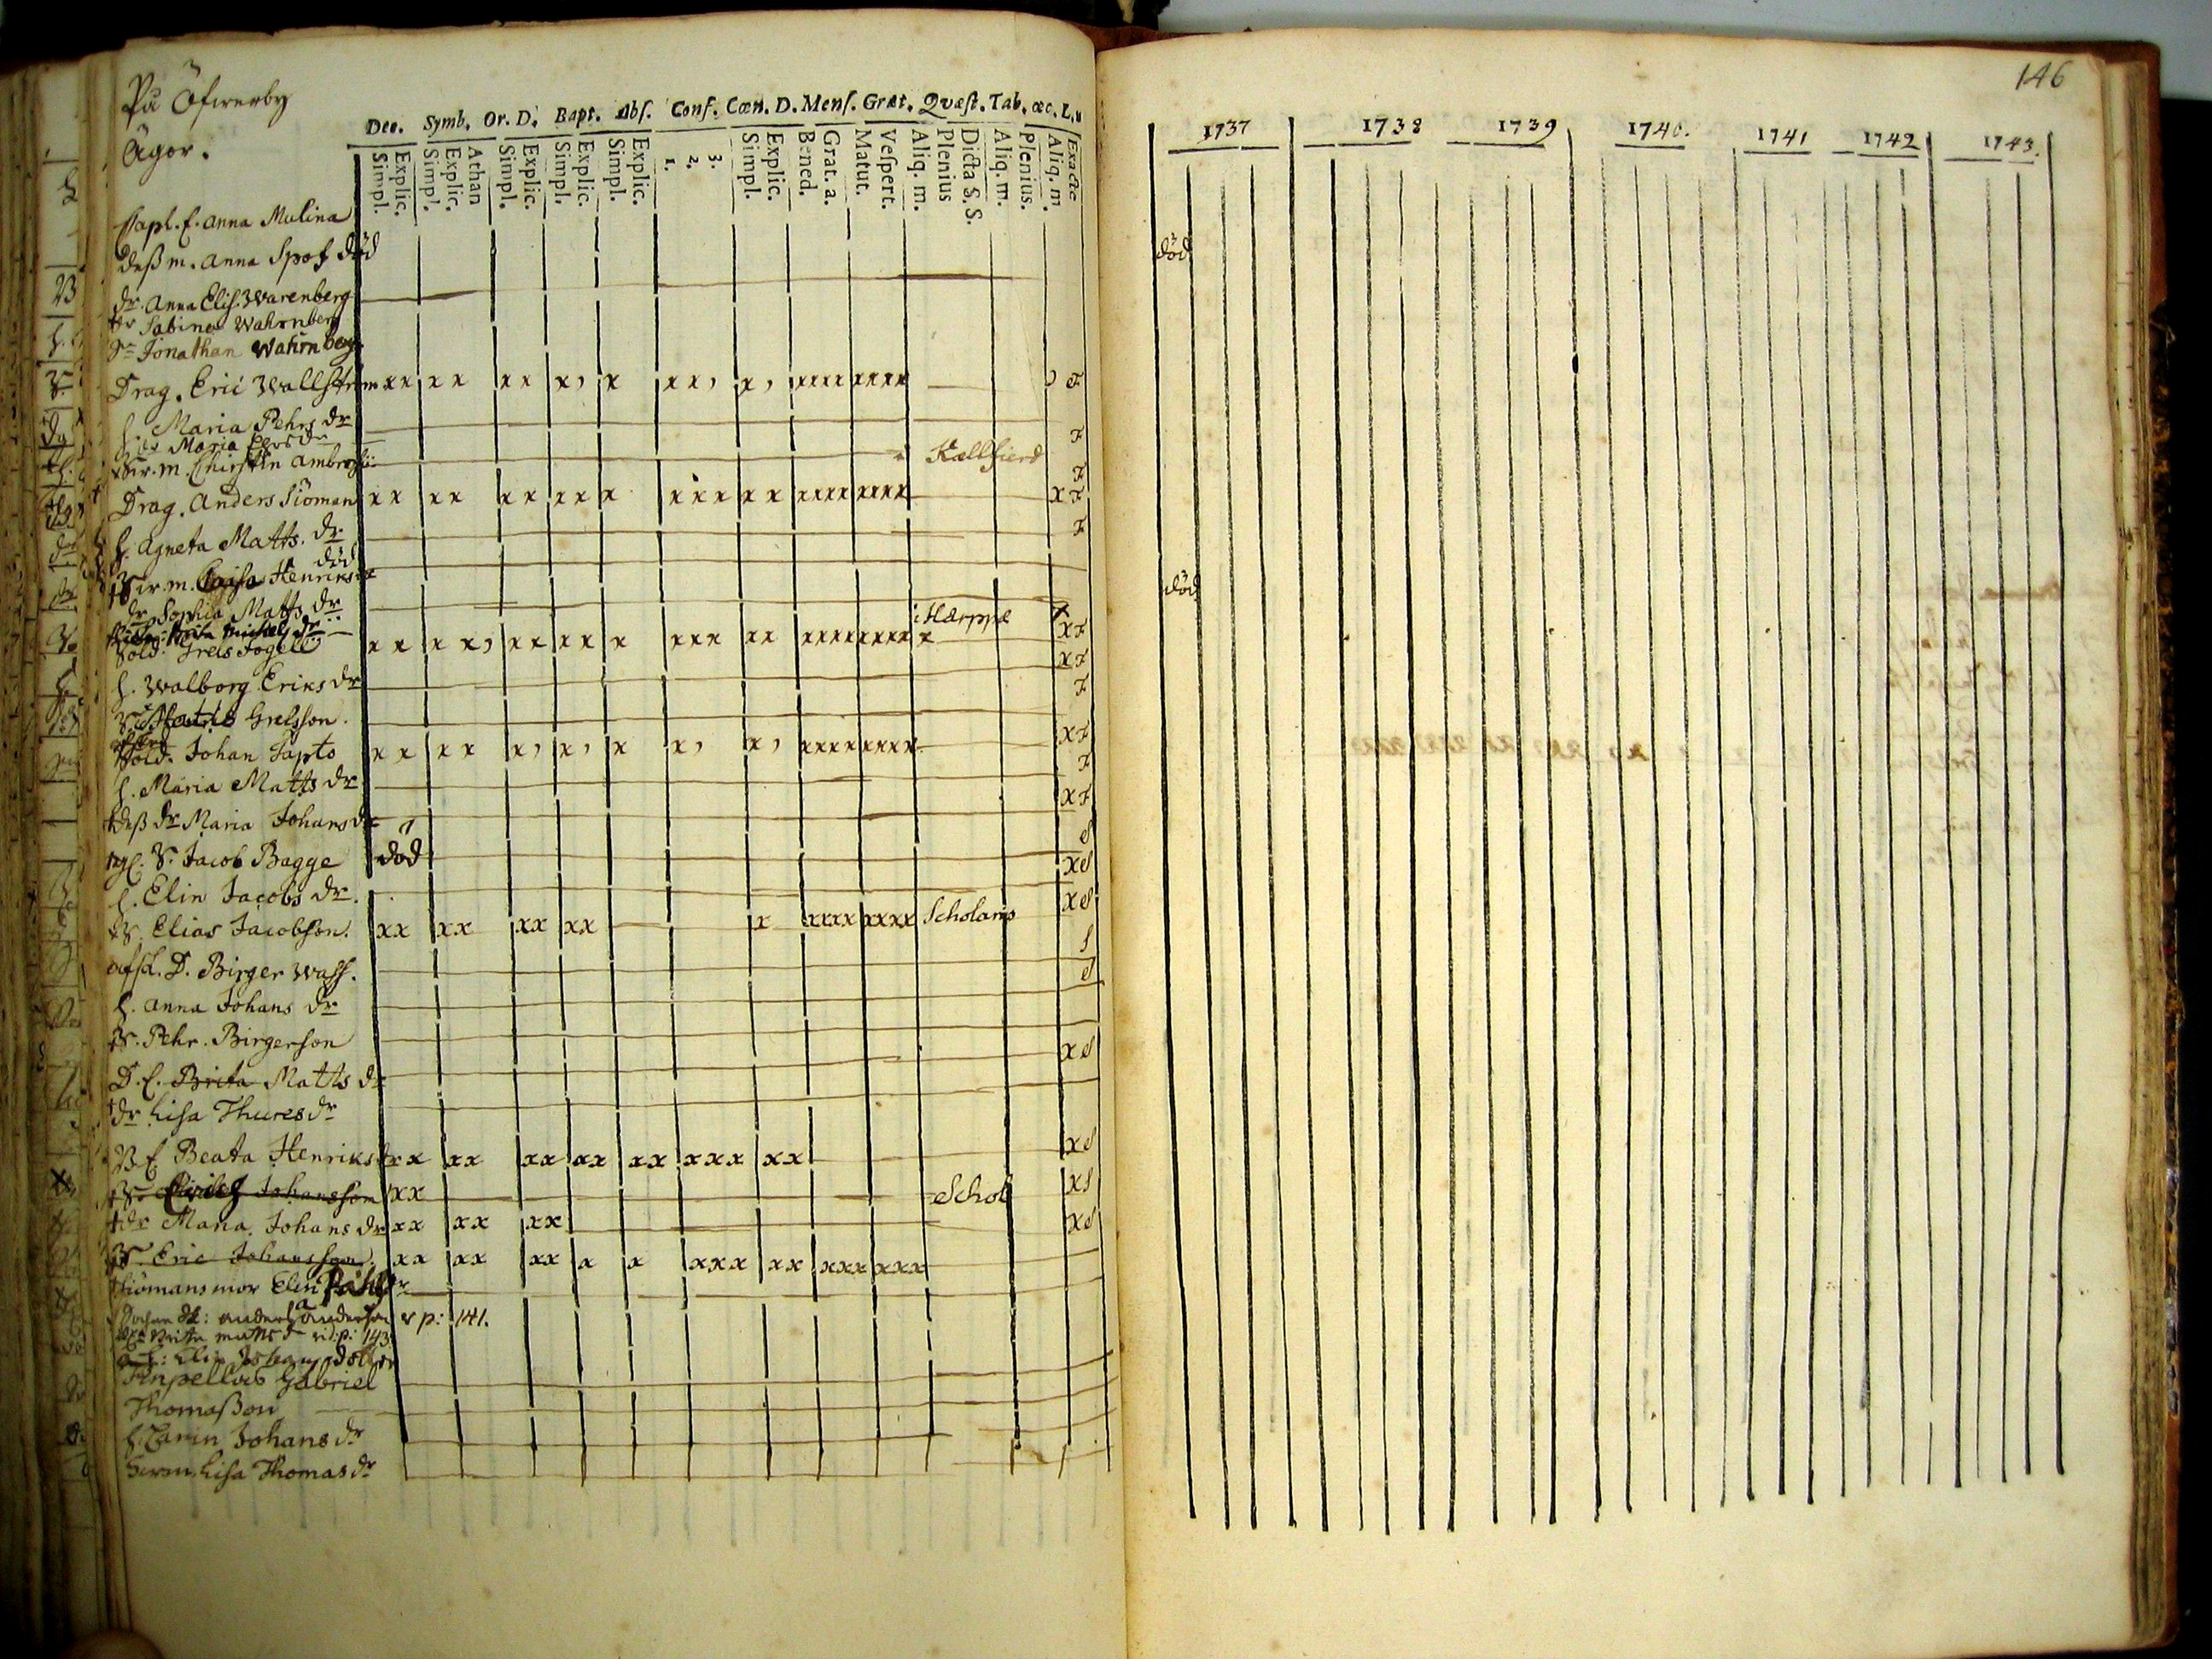 På Öfwerby
Ägor.
Dec. Symb. Or. D. Bapt. Abs. Conf. Cœn. D. Mens. Grat. Quæst. Tab. œc. L.
Simpl. Explic. Simpl. Explic. Athan Simpl. Explic. Simpl. Explic. Simpl. Explic. 1. 2. 3. Simpl. Explic. Bened. Grat. a. Matut. Vespert. Aliq. m. Plenius Dicta S. S. Aliq. m. Plenius. Aliq. m. Exacte
Capl. E. Anna Mulina
deß m. Anna Spof död
dr. Anna Elis. Warenberg
dr Sabina Wahrnberg
Sn Jonathan Wahrnberg
Drag. Eric Wallström xx xx xx x, x xx, x, xxxx xxxx , F
h. Maria Pehrs dr F
Maria Pers dr
Sw. m. Chirstin Ambrosii Kallfierd F
Drag. Anders Siöman xx xx xx xx x xxx xx xxxx xxxx x F
h. Agneta Matts. dr F
död
Sw. m. Henriks
dr Sophia Matts dr i Härppe x
Sold. Grels Fogell xx xx, xx xx x xxx xx xxxx xxxx x xF
h. Walborg Eriks dr xF
Grelsson. F
Sold. Johan Tapto xx xx x, x, x x, x, xxxx xxxx xF
h. Maria Matts dr F
deß dr Maria Johans dr xF
S. Jacob Bagge död S
h. Elin Jacobs dr. xS
S. Elias Jacobson. xx xx xx xx x xxxx xxxx Scholaris xS
afsk. D. Birger Wass. S
h. Anna Johans dr S
S. Pehr. Birgerson
D. E. Brita Matts dr xS
dr Lisa Thures dr
B. E Beata Henriks dr xx xx xx xx xx xxx xx xS
S. Johansson xx Schol xS
dr Maria Johans dr xx xx xx xS
S. Eric Johansson xx xx xx x x xxx xx xxx xxx
Siömans mor Elin Påhls dr
Anders Anderson v p: 141.
Britta Matts dr vid. p: 143
Elin Johans dotter
Gabriel
Thomaßon
h. Carin Johans dr
Lisa Thomas dr
146
1737 1738 1739 1740. 1741 1742 1743.
död
död